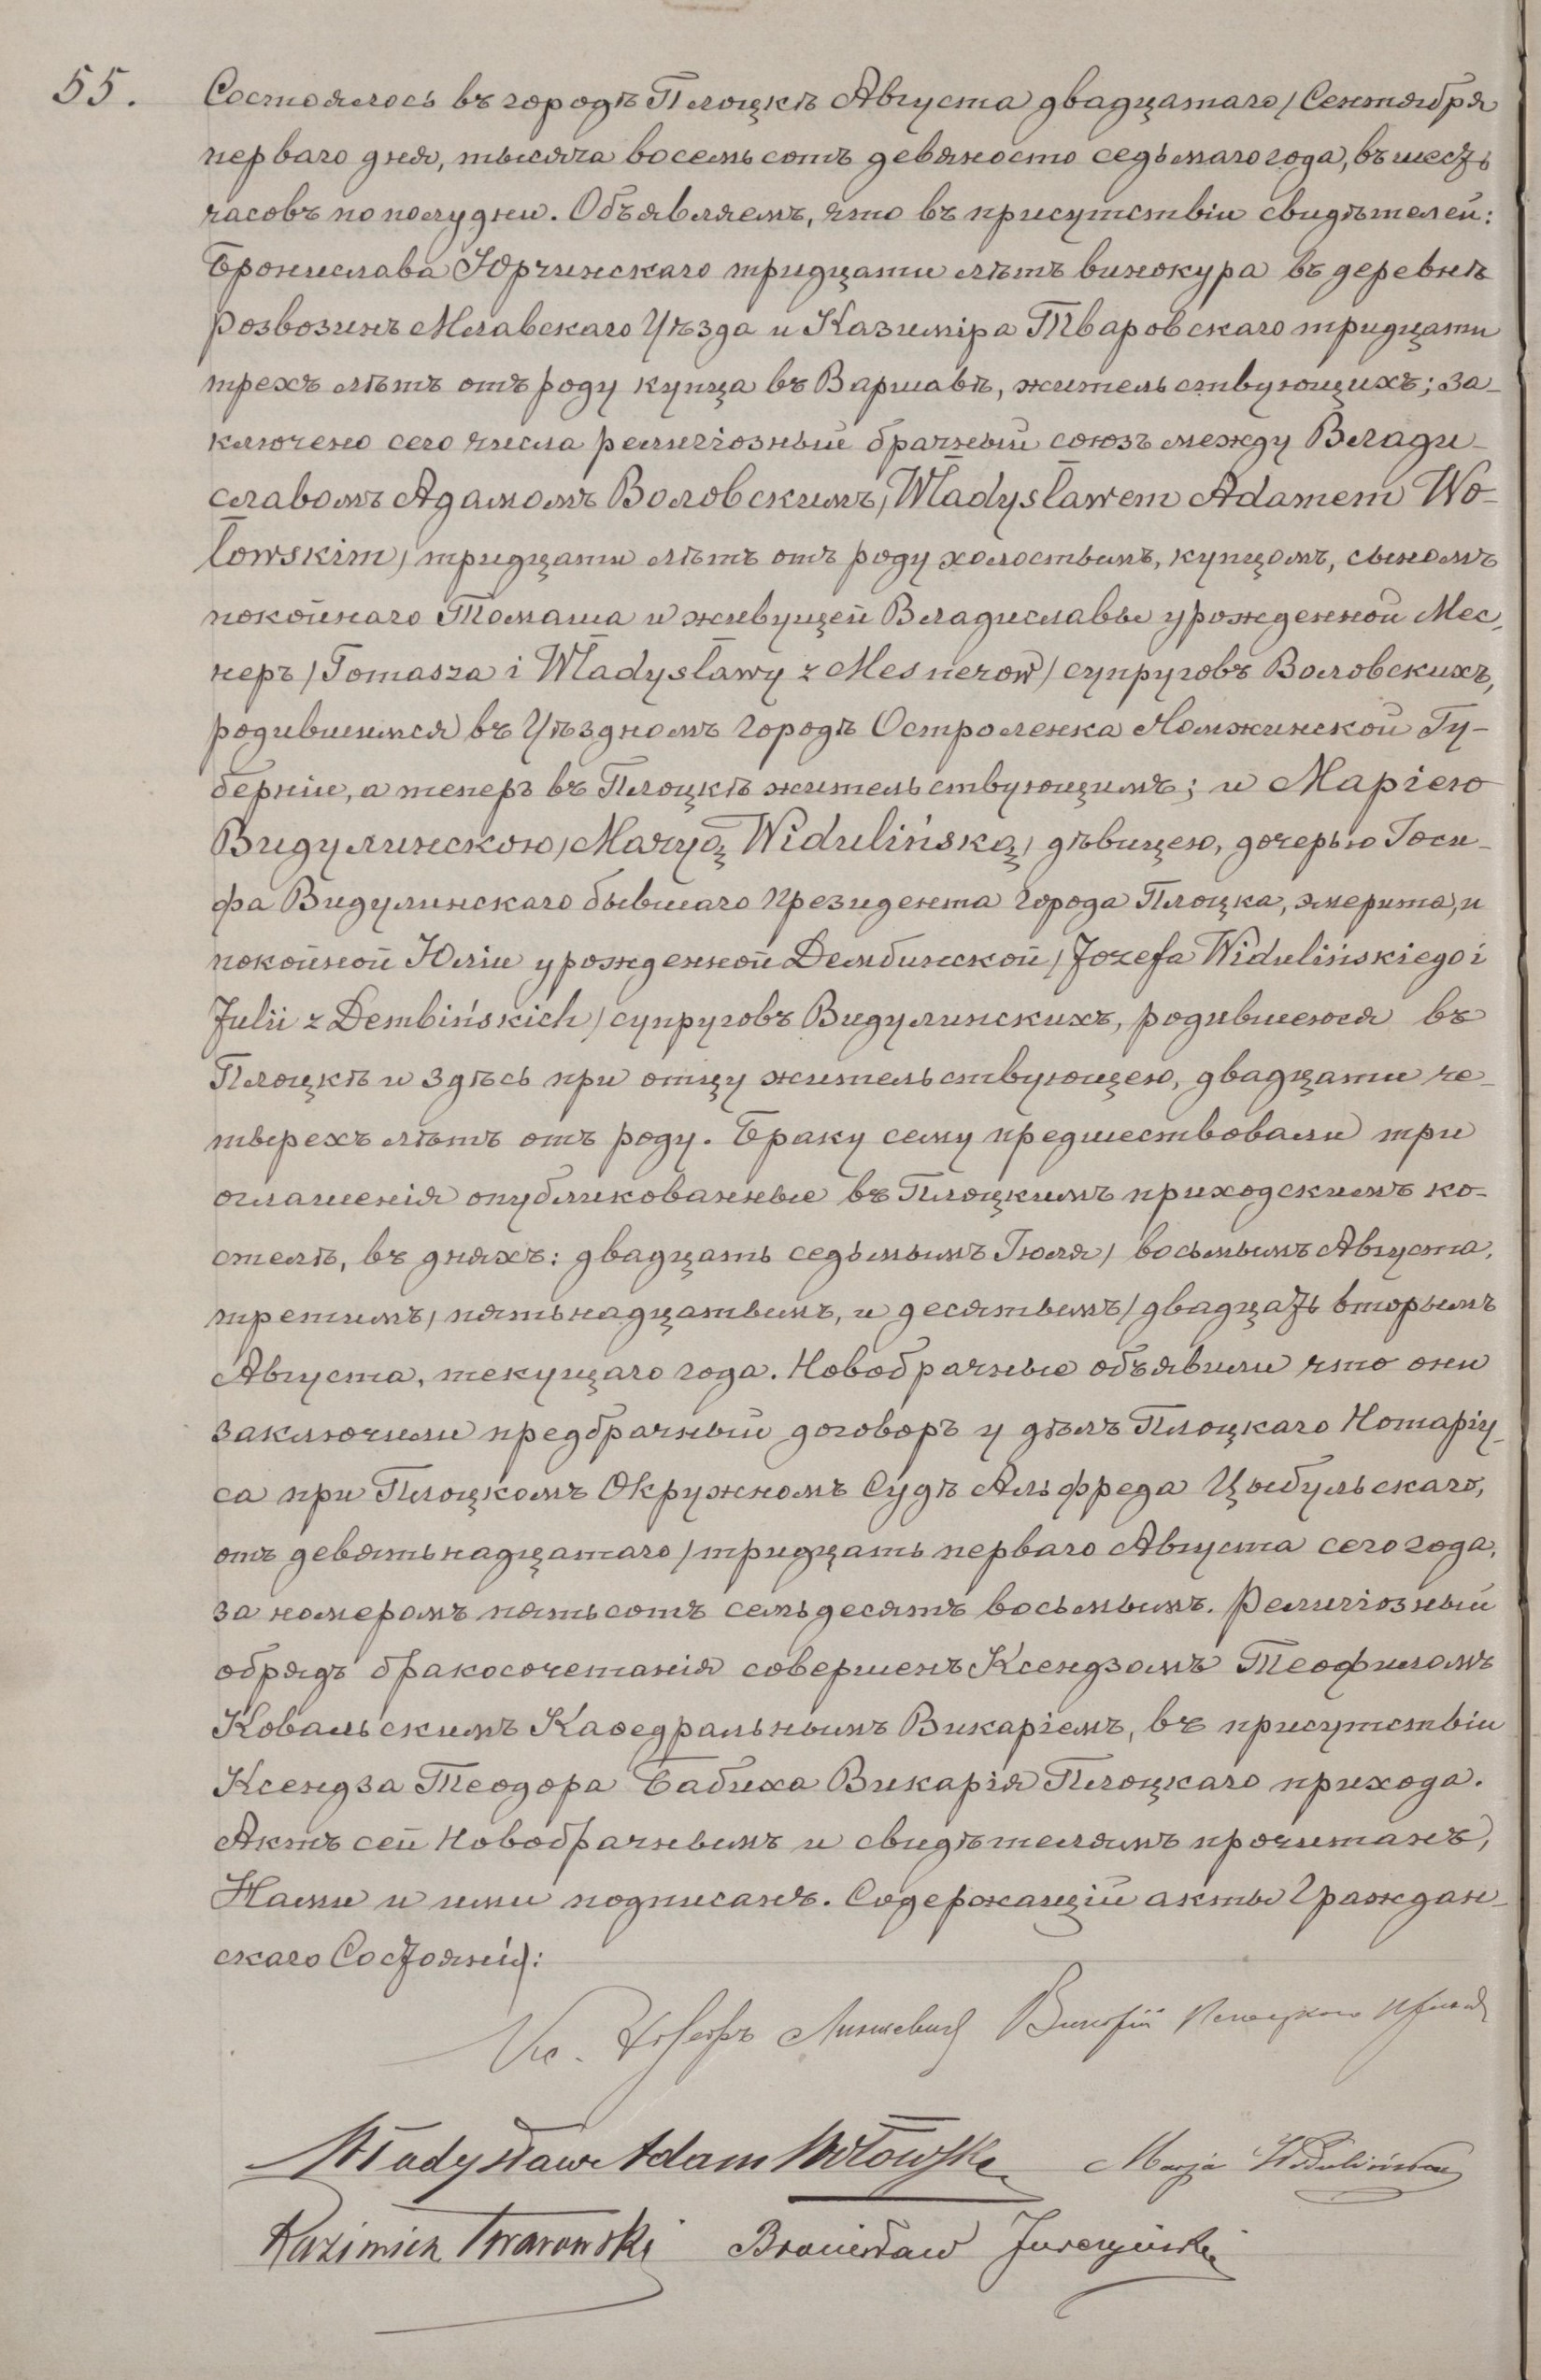 55. Состоялось въ городѣ Плоцкѣ Августа двадцатаго / Сентября
перваго дня, тысяча восемьсотъ девяносто седьмаго года, въ шесть
часовъ по полудни. Объявляемъ, что въ присутствіи свидѣтелей:
Бронислава Юрчинскаго тридцати лѣтъ винокура въ деревнѣ
Розвозинъ Млавскаго Уѣзда и Казиміра Тваровскаго тридцати
трехъ лѣтъ отъ роду купца въ Варшавѣ, жительствующихъ; за-
ключено сего числа религіозный брачный союзъ между Влади-
славомъ Адамомъ Воловскимъ, /Władysławem Adamem Wo-
łowskim/ тридцати лѣтъ отъ роду холостымъ, купцомъ, сыномъ
покойнаго Томаша и живущей Владиславы урожденной Мес-
неръ /Tomasza i Władysławy z Mesnerow/ супруговъ Воловскихъ,
родившимся въ Уѣздномъ городѣ Остроленка Ломжинской Гу-
берніи, а теперь въ Плоцкѣ жительствующимъ; и Маріею
Видулинскою /Maryą Widulińską/ дѣвицею, дочерью Іоси-
фа Видулинскаго бывшаго Президента города Плоцка, эмерита, и
покойной Юліи урожденной Дембинской /Jozefa Widulińskiego i
Julii z Dembińskich/ супруговъ Видулинскихъ, родившеюся въ
Плоцкѣ и здѣсь при отцу жительствующею, двадцати че-
тырехъ лѣтъ отъ роду. Браку сему предшествовали три
оглашенія опубликованные въ Плоцкимъ приходскимъ ко-
стелѣ, въ дняхъ: двадцать седьмымъ Іюля / восьмымъ Августа,
третимъ / пятьнадцатымъ, и десятымъ / двадцать вторымъ
Августа, текущаго года. Новобрачные объявили что они
заключили предбрачный договоръ у дѣлъ Плоцкаго Нотаріу-
са при Плоцкомъ Окружномъ Судѣ Альфреда Цыбульскаго,
отъ девятьнадцатаго / тридцать перваго Августа сего года,
за номеромъ пятьсотъ семьдесятъ восьмымъ. Религіозный
обрядъ бракосочетанія совершенъ Ксендзомъ Теофиломъ
Ковальскимъ Каѳедральнымъ Викаріемъ, въ присутствіи
Ксендза Теодора Бабиха Викарія Плоцкаго прихода.
Актъ сей Новобрачнымъ и свидѣтелямъ прочитанъ,
Нами и ими подписанъ. Содержащій акты Граждан-
скаго Состоянія:
Викарій Плоцкаго прихода
Władysław Adam Wołowski Marja Widulińska
Kazimierz Twarowski Bronisław Jurczyński